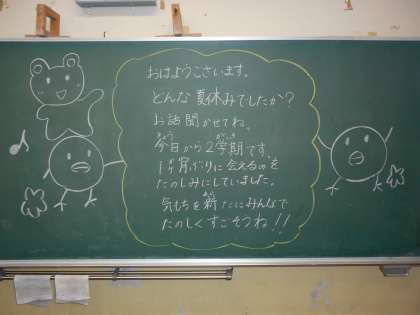 おはようございます。
どんな夏休みでしたか？
お話聞かせてね。
今日から2学期です。
1ヶ月ぶりに会えるのを
たのしみにしていました。
気もちを新たにみんなで
たのしくすごそうね!!